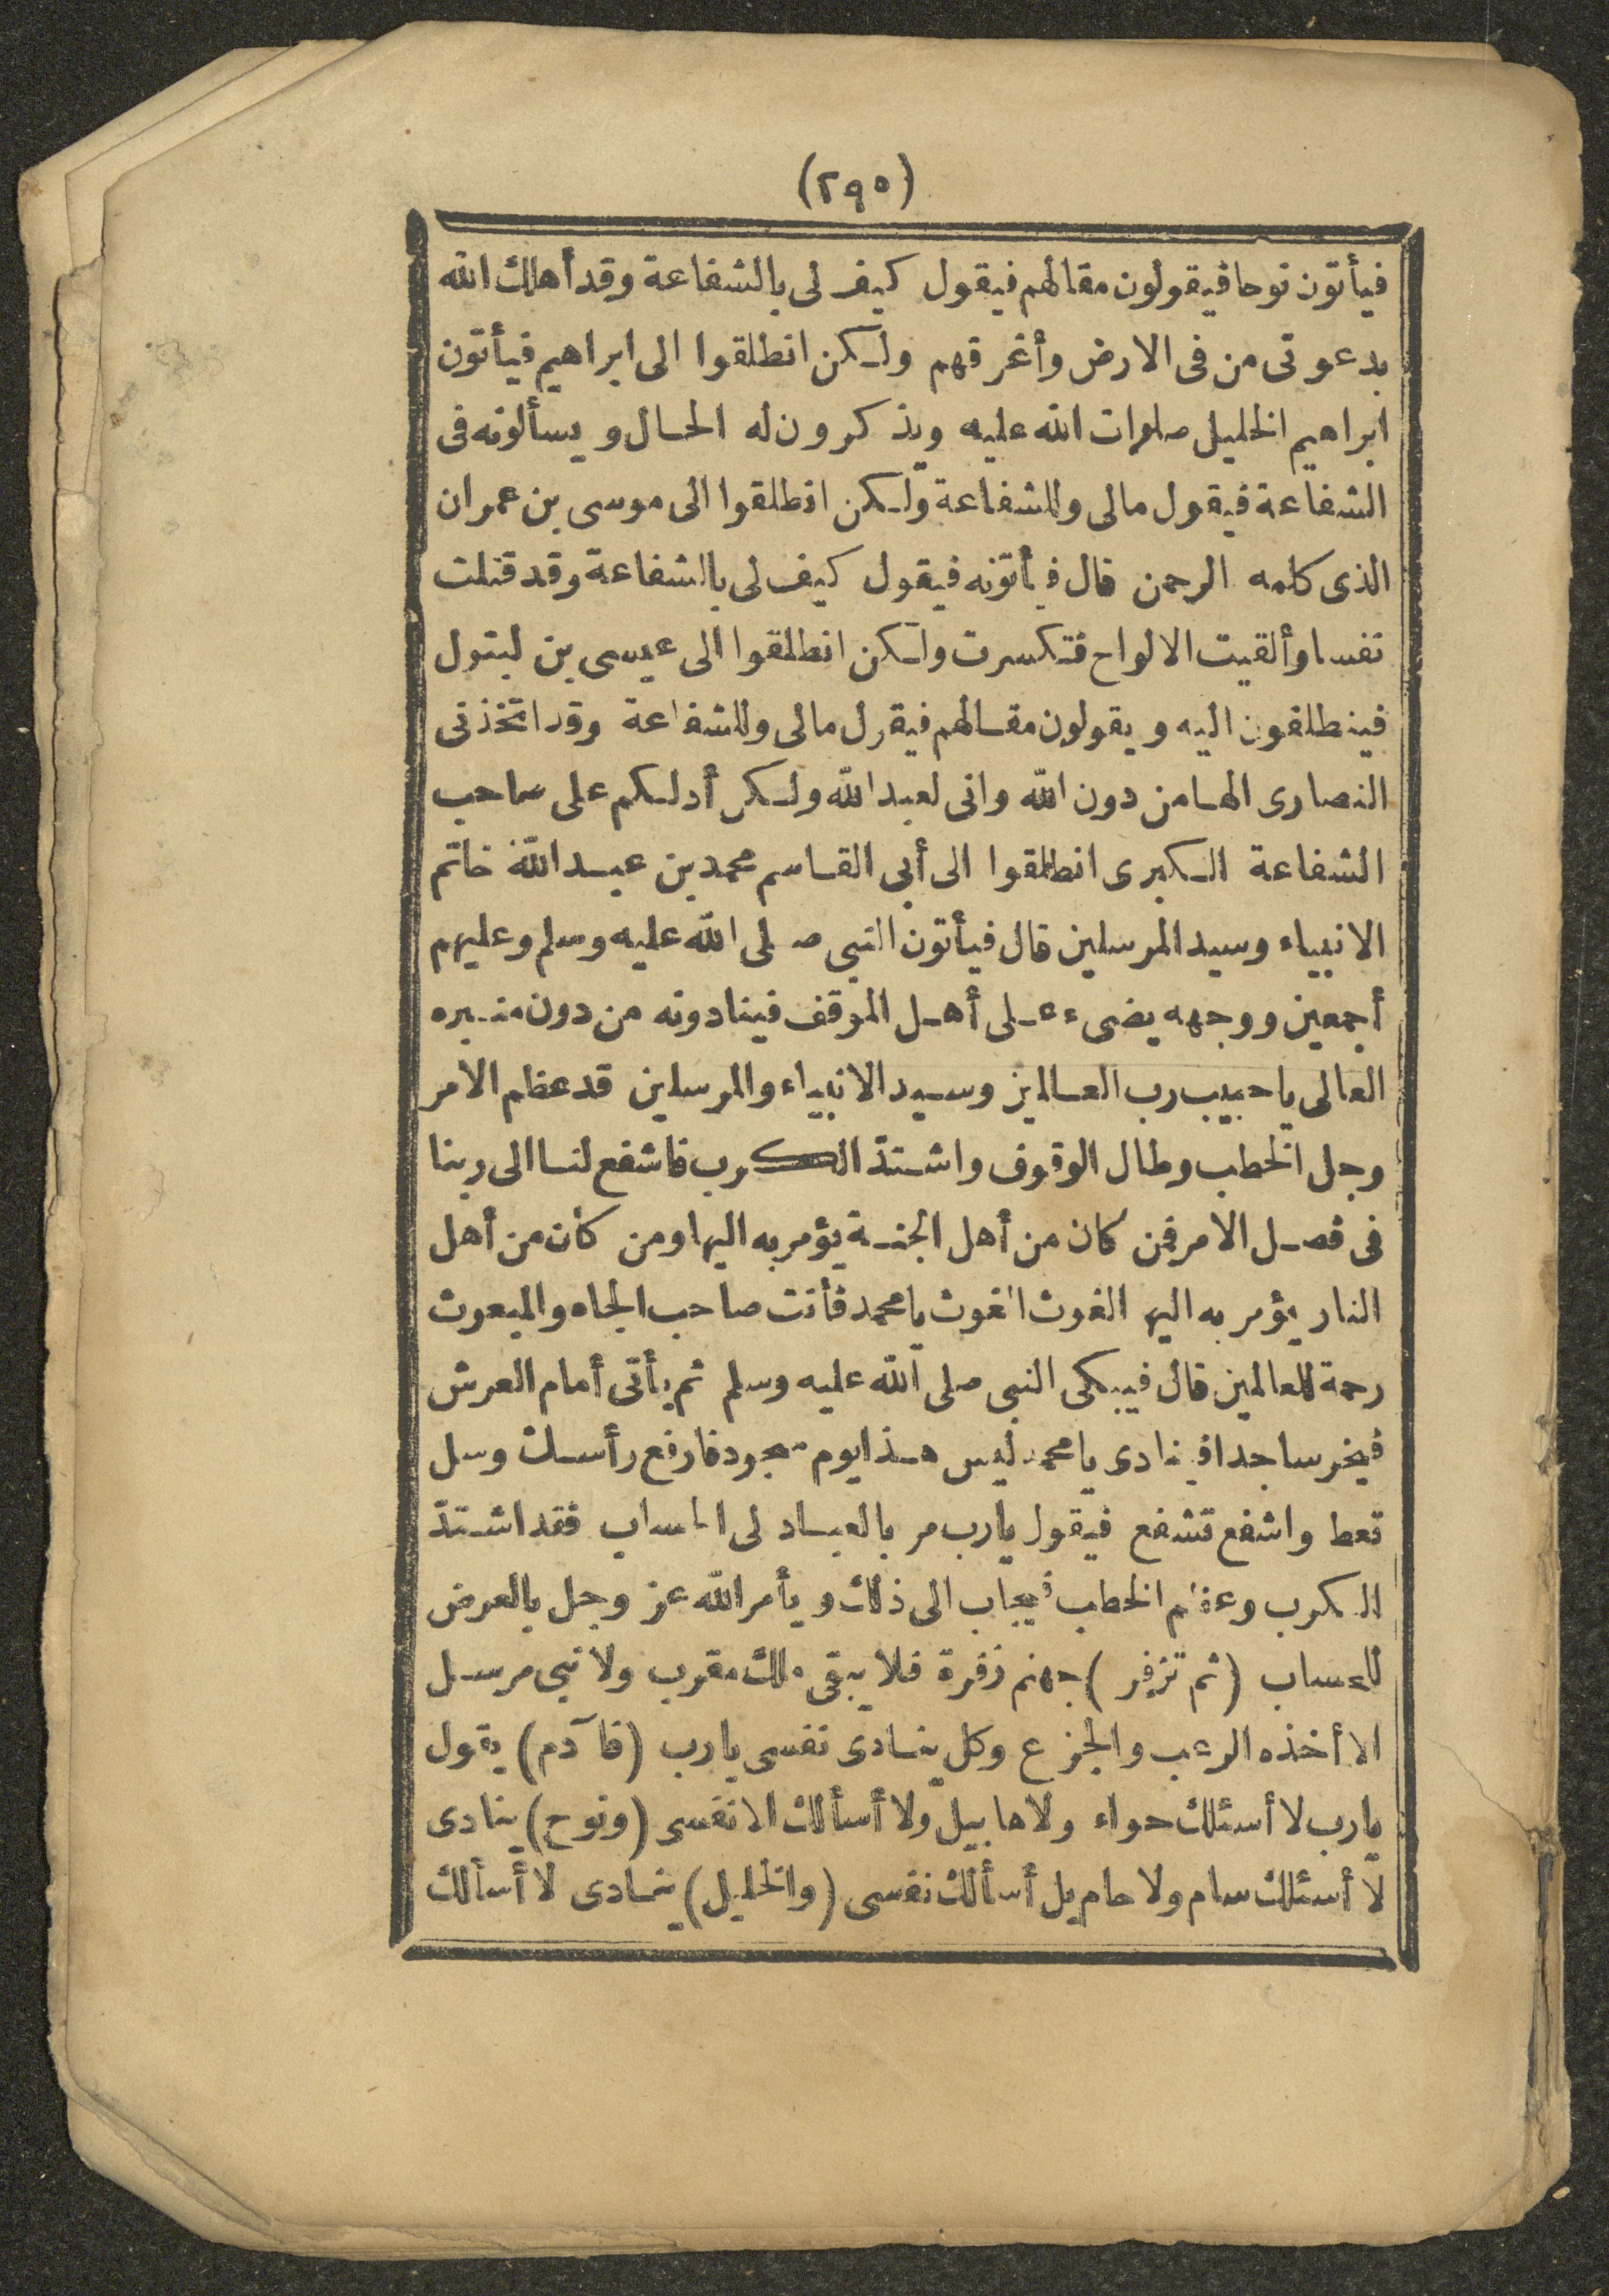 (٢٩٥)
فيأتون نوحا فيقولون مقالهم فيقول كيف لى بالشفاعة وقد أهلك الله
بدعوتى من فى الارض وأغرقهم ولكن انطلقوا الى ابراهيم فيأتون
ابراهيم الخليل صلوات الله عليه ويذكرون له الحال ويسألونه فى
الشفاعة فيقول مالى وللشفاعة ولكن انطلقوا الى موسى بن عمران
الذى كلمه الرحمن قال فيأتونه فيقول كيف لى بالشفاعة وقد قتلت
نفسا وألقيت الالواح فتكسرت ولكن انطلقوا الى عيسى بن لبتول
فينطلقون اليه ويقولون مقالهم فيقول مالى وللشفاعة وقد اتخذنى
النصارى الها من دون الله وانى لعبد الله ولكن أدلكم على صاحب
الشفاعة الكبرى انطلقوا الى أبى القاسم محمد بن عبد الله خاتم
الانبياء وسيد المرسلين قال فيأتون النبى صلى الله عليه وسلم وعليهم
أجمعين ووجهه يضىء على أهل الموقف فينادونه من دون منبره
العالى يا حبيب رب العالمين وسيد الانبياء والمرسلين قد عظم الامر
وجل الخطب وطال الوقوف واشتد الكرب فاشفع لنا الى ربنا
فى فصل الامر فمن كان من أهل الجنة يؤمر به اليها ومن كان من أهل
النار يؤمر به اليها الغوث الغوث يا محمد فأنت صاحب الجاه والمبعوث
رحمة للعالمين قال فيبكى النبى صلى الله عليه وسلم ثم يأتى أمام العرش
فيخر ساجدا فينادى يا محمد ليس هذا يوم سجود فارفع رأسك وسل
تعط واشفع تشفع فيقول يارب مر بالعباد لى الحساب فقد اشتد
الكرب وعظم الخطب فيجاب الى ذلك ويأمر الله عز وجل بالعرض
للحساب (ثم تزفر) جهنم زفرة فلا يبقى ملك مقرب ولا نبى مرسل
الا أخذه الرعب والجزع وكل ينادى نفسى يارب (فآدم) يقول
يارب لا أسئلك حواء ولا هابيل ولا أسألك الا نفسى (ونوح) ينادى
لا أسئلك سام ولا حام بل أسألك نفسى (والخليل) ينادى لا أسألك